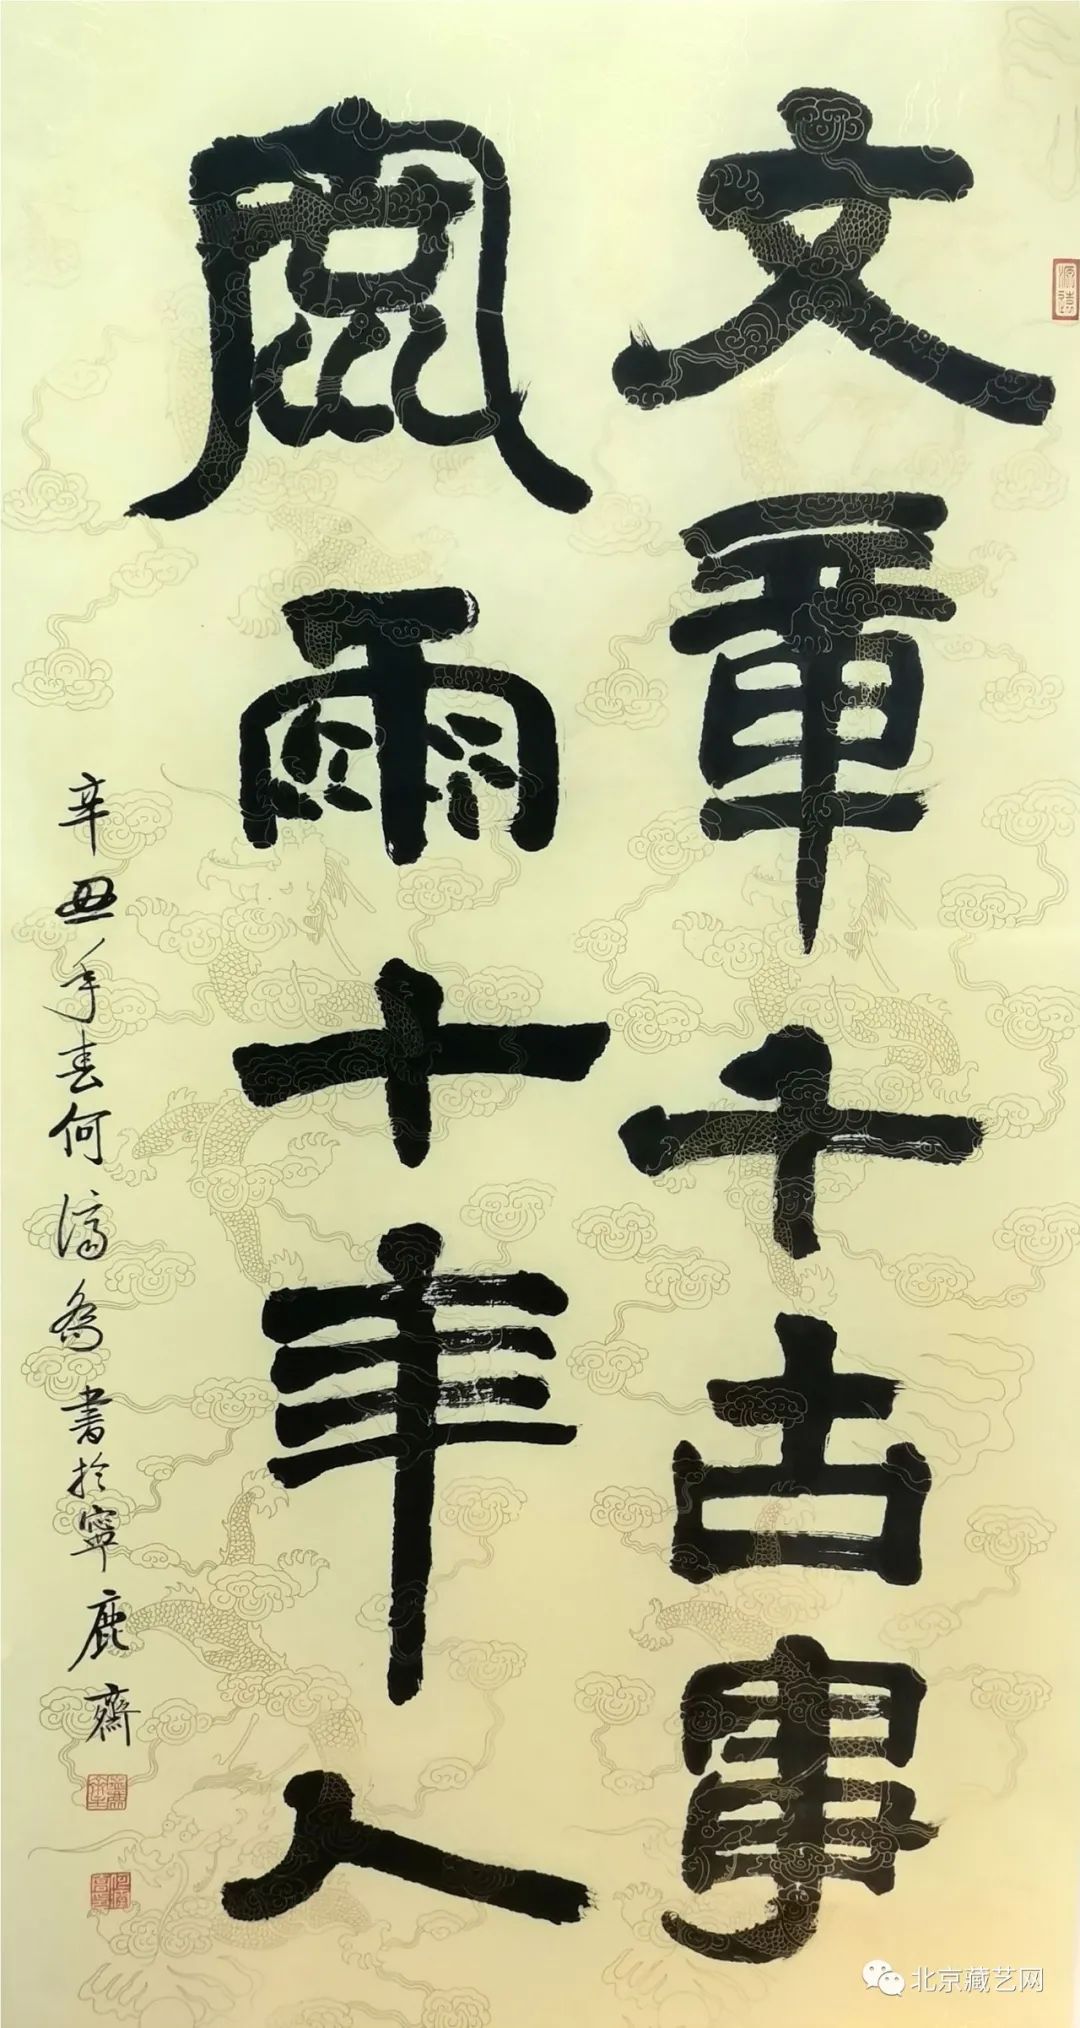 文章千古事
風雨十年人
辛丑年春何濤為書於寧鹿齋
北京藏艺网